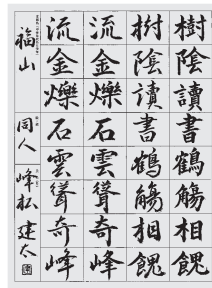 樹陰讀書鶴觴相餽
樹陰讀書鶴觴相餽
流金爍石雲聳奇峰
流金爍石雲聳奇峰
福山
同人
峰松建太